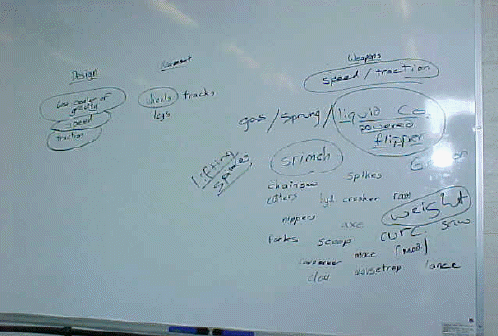 Design
low center of
speed
traction
Movement
wheels tracks
legs
Weapons
speed/traction
gas/sprung/liquid Co2
powered
flipper
lifting
spikes
srimech
spikes
chainsaw
cutters hyd crusher ram
weight
nippers axe
forks scoop circ. saw
mace
claw mousetrap lance